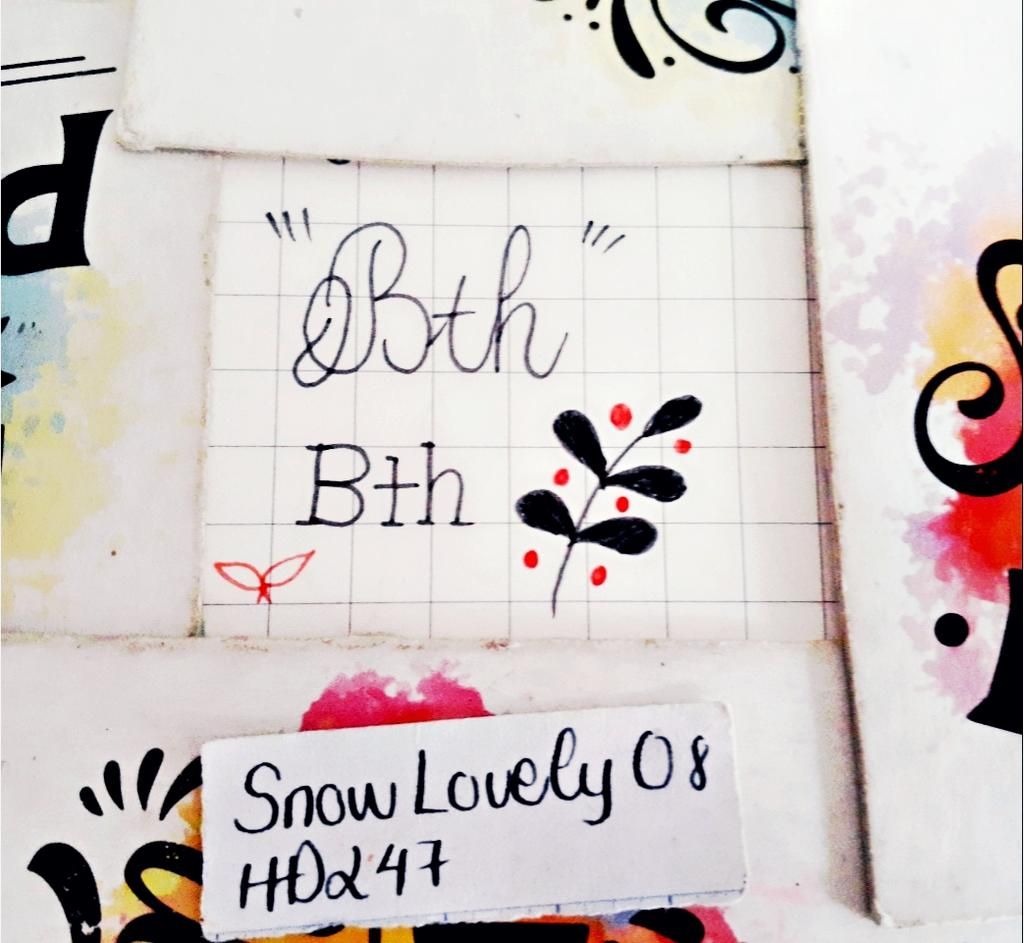 "'Bth"'
Bth
Snow Lovely 08
HD247
d